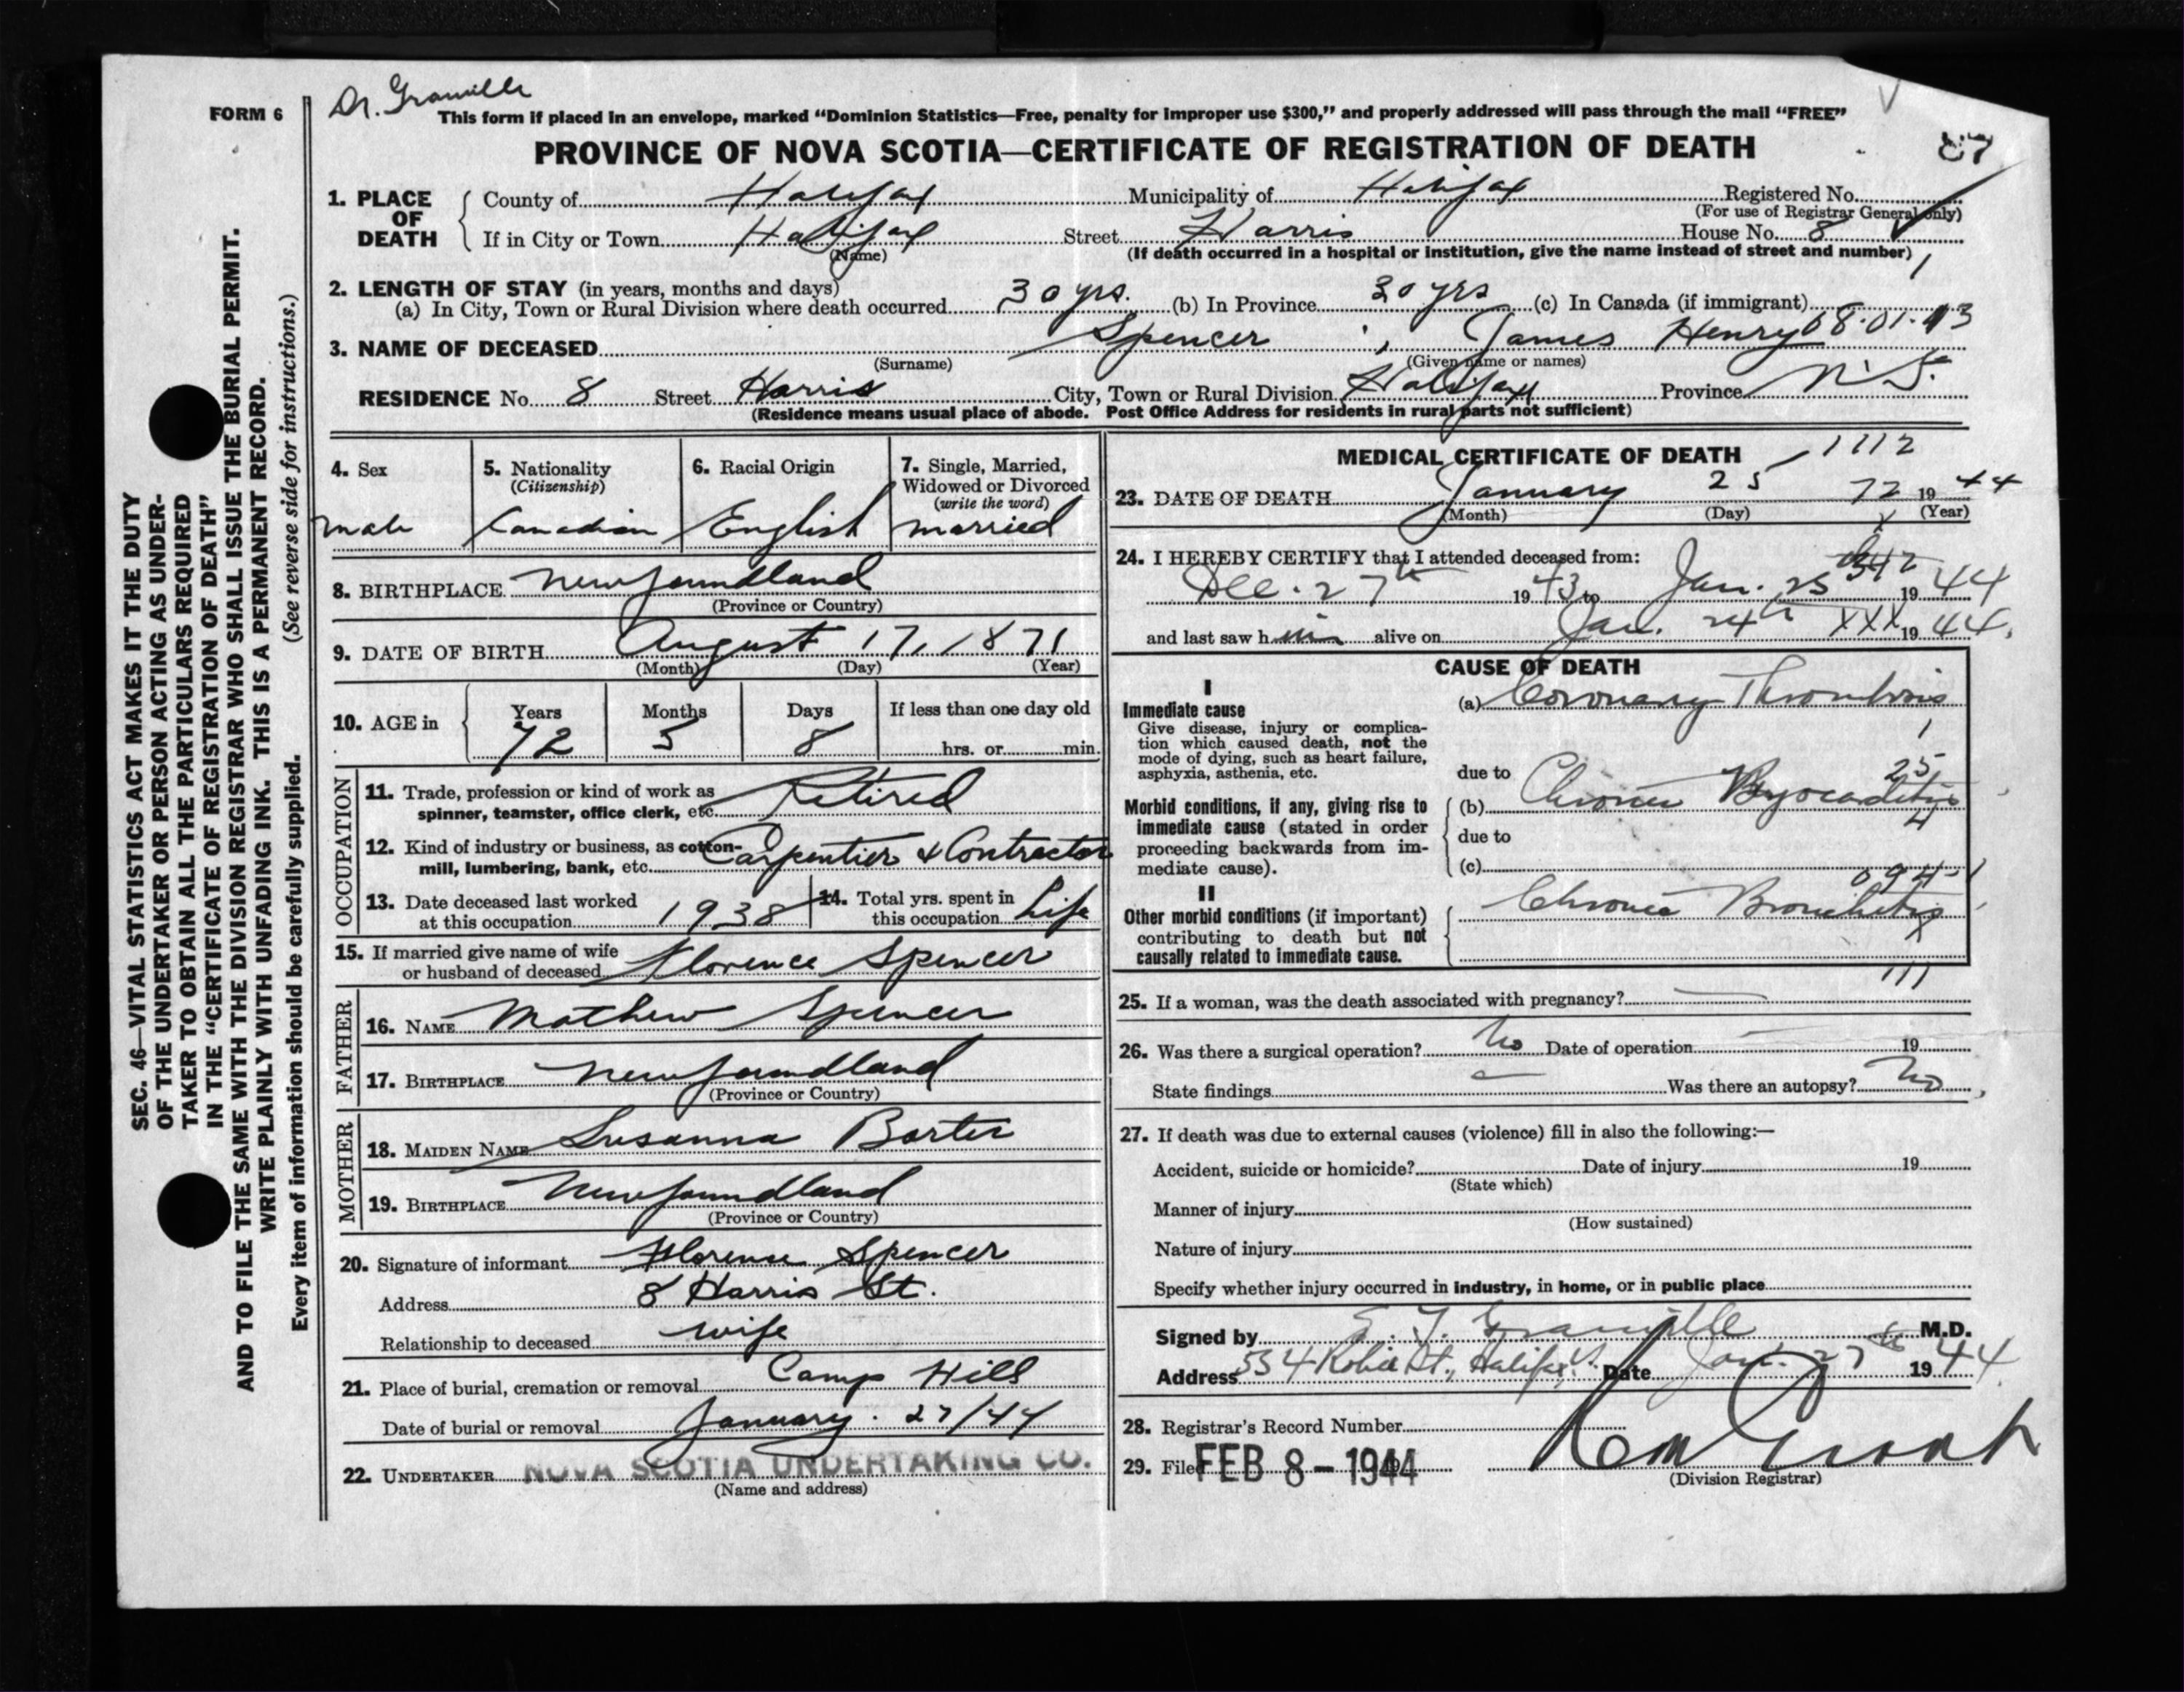 FORM 6
Dr. Granville
This form if placed in an envelope, marked “Dominion Statistics—Free, penalty for improper use $300,” and properly addressed will pass through the mail “FREE”
PROVINCE OF NOVA SCOTIA—CERTIFICATE OF REGISTRATION OF DEATH
87
1. PLACE OF DEATH
County of Halifax Municipality of Halifax Registered No.
(For use of Registrar General only)
If in City or Town Halifax Street Harris House No. 8
(Name) (If death occurred in a hospital or institution, give the name instead of street and number)
2. LENGTH OF STAY (in years, months and days)
(a) In City, Town or Rural Division where death occurred 30 yrs. (b) In Province 30 yrs (c) In Canada (if immigrant)
3. NAME OF DECEASED Spencer, James Henry 68.01.13
(Surname) (Given name or names)
RESIDENCE No. 8 Street Harris City, Town or Rural Division Halifax Province N.S.
(Residence means usual place of abode. Post Office Address for residents in rural parts not sufficient)
SEC. 46—VITAL STATISTICS ACT MAKES IT THE DUTY
OF THE UNDERTAKER OR PERSON ACTING AS UNDER-
TAKER TO OBTAIN ALL THE PARTICULARS REQUIRED
IN THE “CERTIFICATE OF REGISTRATION OF DEATH”
AND TO FILE THE SAME WITH THE DIVISION REGISTRAR WHO SHALL ISSUE THE BURIAL PERMIT.
WRITE PLAINLY WITH UNFADING INK. THIS IS A PERMANENT RECORD.
Every item of information should be carefully supplied. (See reverse side for instructions.)
4. Sex
male
5. Nationality
(Citizenship)
Canadian
6. Racial Origin
English
7. Single, Married,
Widowed or Divorced
(write the word)
married
8. BIRTHPLACE Newfoundland
(Province or Country)
9. DATE OF BIRTH August 17, 1871
(Month) (Day) (Year)
10. AGE in Years Months Days If less than one day old
72 5 8 hrs. or min.
OCCUPATION
11. Trade, profession or kind of work as
spinner, teamster, office clerk, etc. Retired
12. Kind of industry or business, as cotton-
mill, lumbering, bank, etc. Carpentier & Contractor
13. Date deceased last worked
at this occupation 1938
14. Total yrs. spent in
this occupation Life
15. If married give name of wife
or husband of deceased Florence Spencer
FATHER
16. NAME Mathew Spencer
17. BIRTHPLACE Newfoundland
(Province or Country)
MOTHER
18. MAIDEN NAME Susanna Barter
19. BIRTHPLACE Newfoundland
(Province or Country)
20. Signature of informant Florence Spencer
Address 8 Harris St.
Relationship to deceased wife
21. Place of burial, cremation or removal Camp Hill
Date of burial or removal January. 27/44
22. UNDERTAKER NOVA SCOTIA UNDERTAKING CO.
(Name and address)
MEDICAL CERTIFICATE OF DEATH
1112
23. DATE OF DEATH January 25 72 1944
(Month) (Day) (Year)
24. I HEREBY CERTIFY that I attended deceased from:
Dec. 27th 1943 to Jan. 25 1944
and last saw him alive on Jan. 24th XXX 1944.
CAUSE OF DEATH
I
Immediate cause
Give disease, injury or complica-
tion which caused death, not the
mode of dying, such as heart failure,
asphyxia, asthenia, etc.
(a) Coronary Thrombosis
1
due to
25
Morbid conditions, if any, giving rise to
immediate cause (stated in order
proceeding backwards from im-
mediate cause).
(b) Chronic Myocarditis
due to
4
(c)
094-1
II
Other morbid conditions (if important)
contributing to death but not
causally related to immediate cause.
Chronic Bronchitis
X
111
25. If a woman, was the death associated with pregnancy?
26. Was there a surgical operation? No Date of operation 19
State findings Was there an autopsy? No
27. If death was due to external causes (violence) fill in also the following:—
Accident, suicide or homicide? Date of injury 19
(State which)
Manner of injury
(How sustained)
Nature of injury
Specify whether injury occurred in industry, in home, or in public place
Signed by E. F. Granville M.D.
Address 554 Robie St., Halifax Date Jan. 27th 1944
28. Registrar's Record Number
29. Filed FEB 8-1944
(Division Registrar)